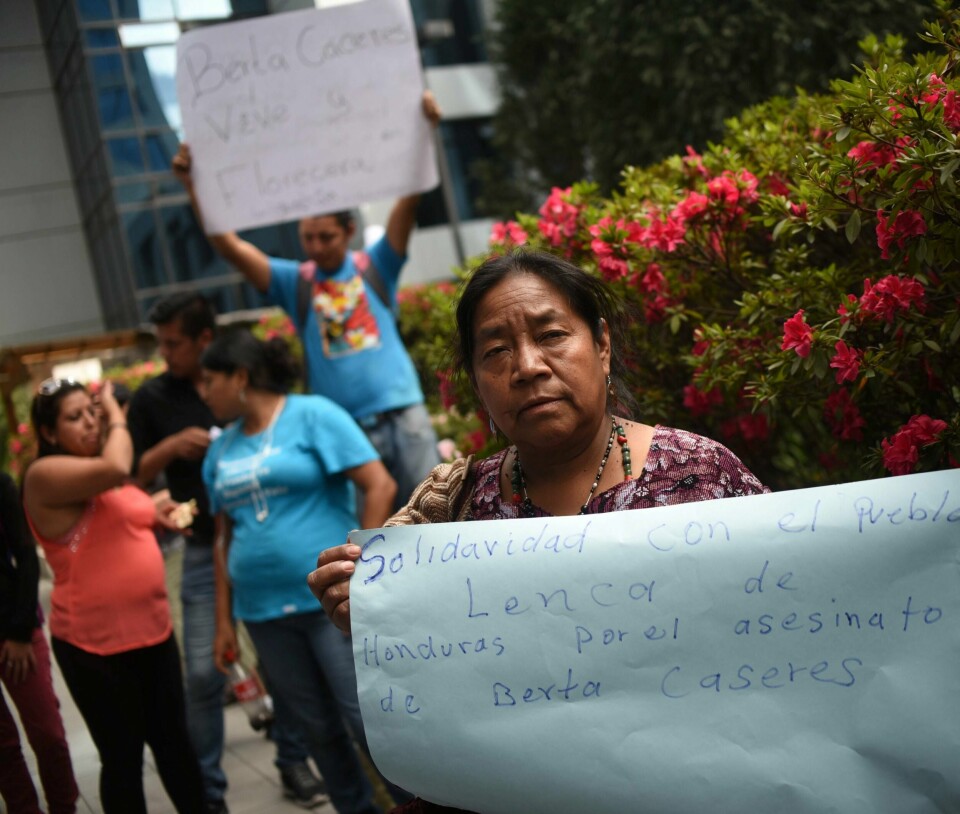 Berta Caceres
Vive y
Florecera
Solidavidad con el pueblo
Lenca de
Honduras por el asesinato
de Berta Caseres